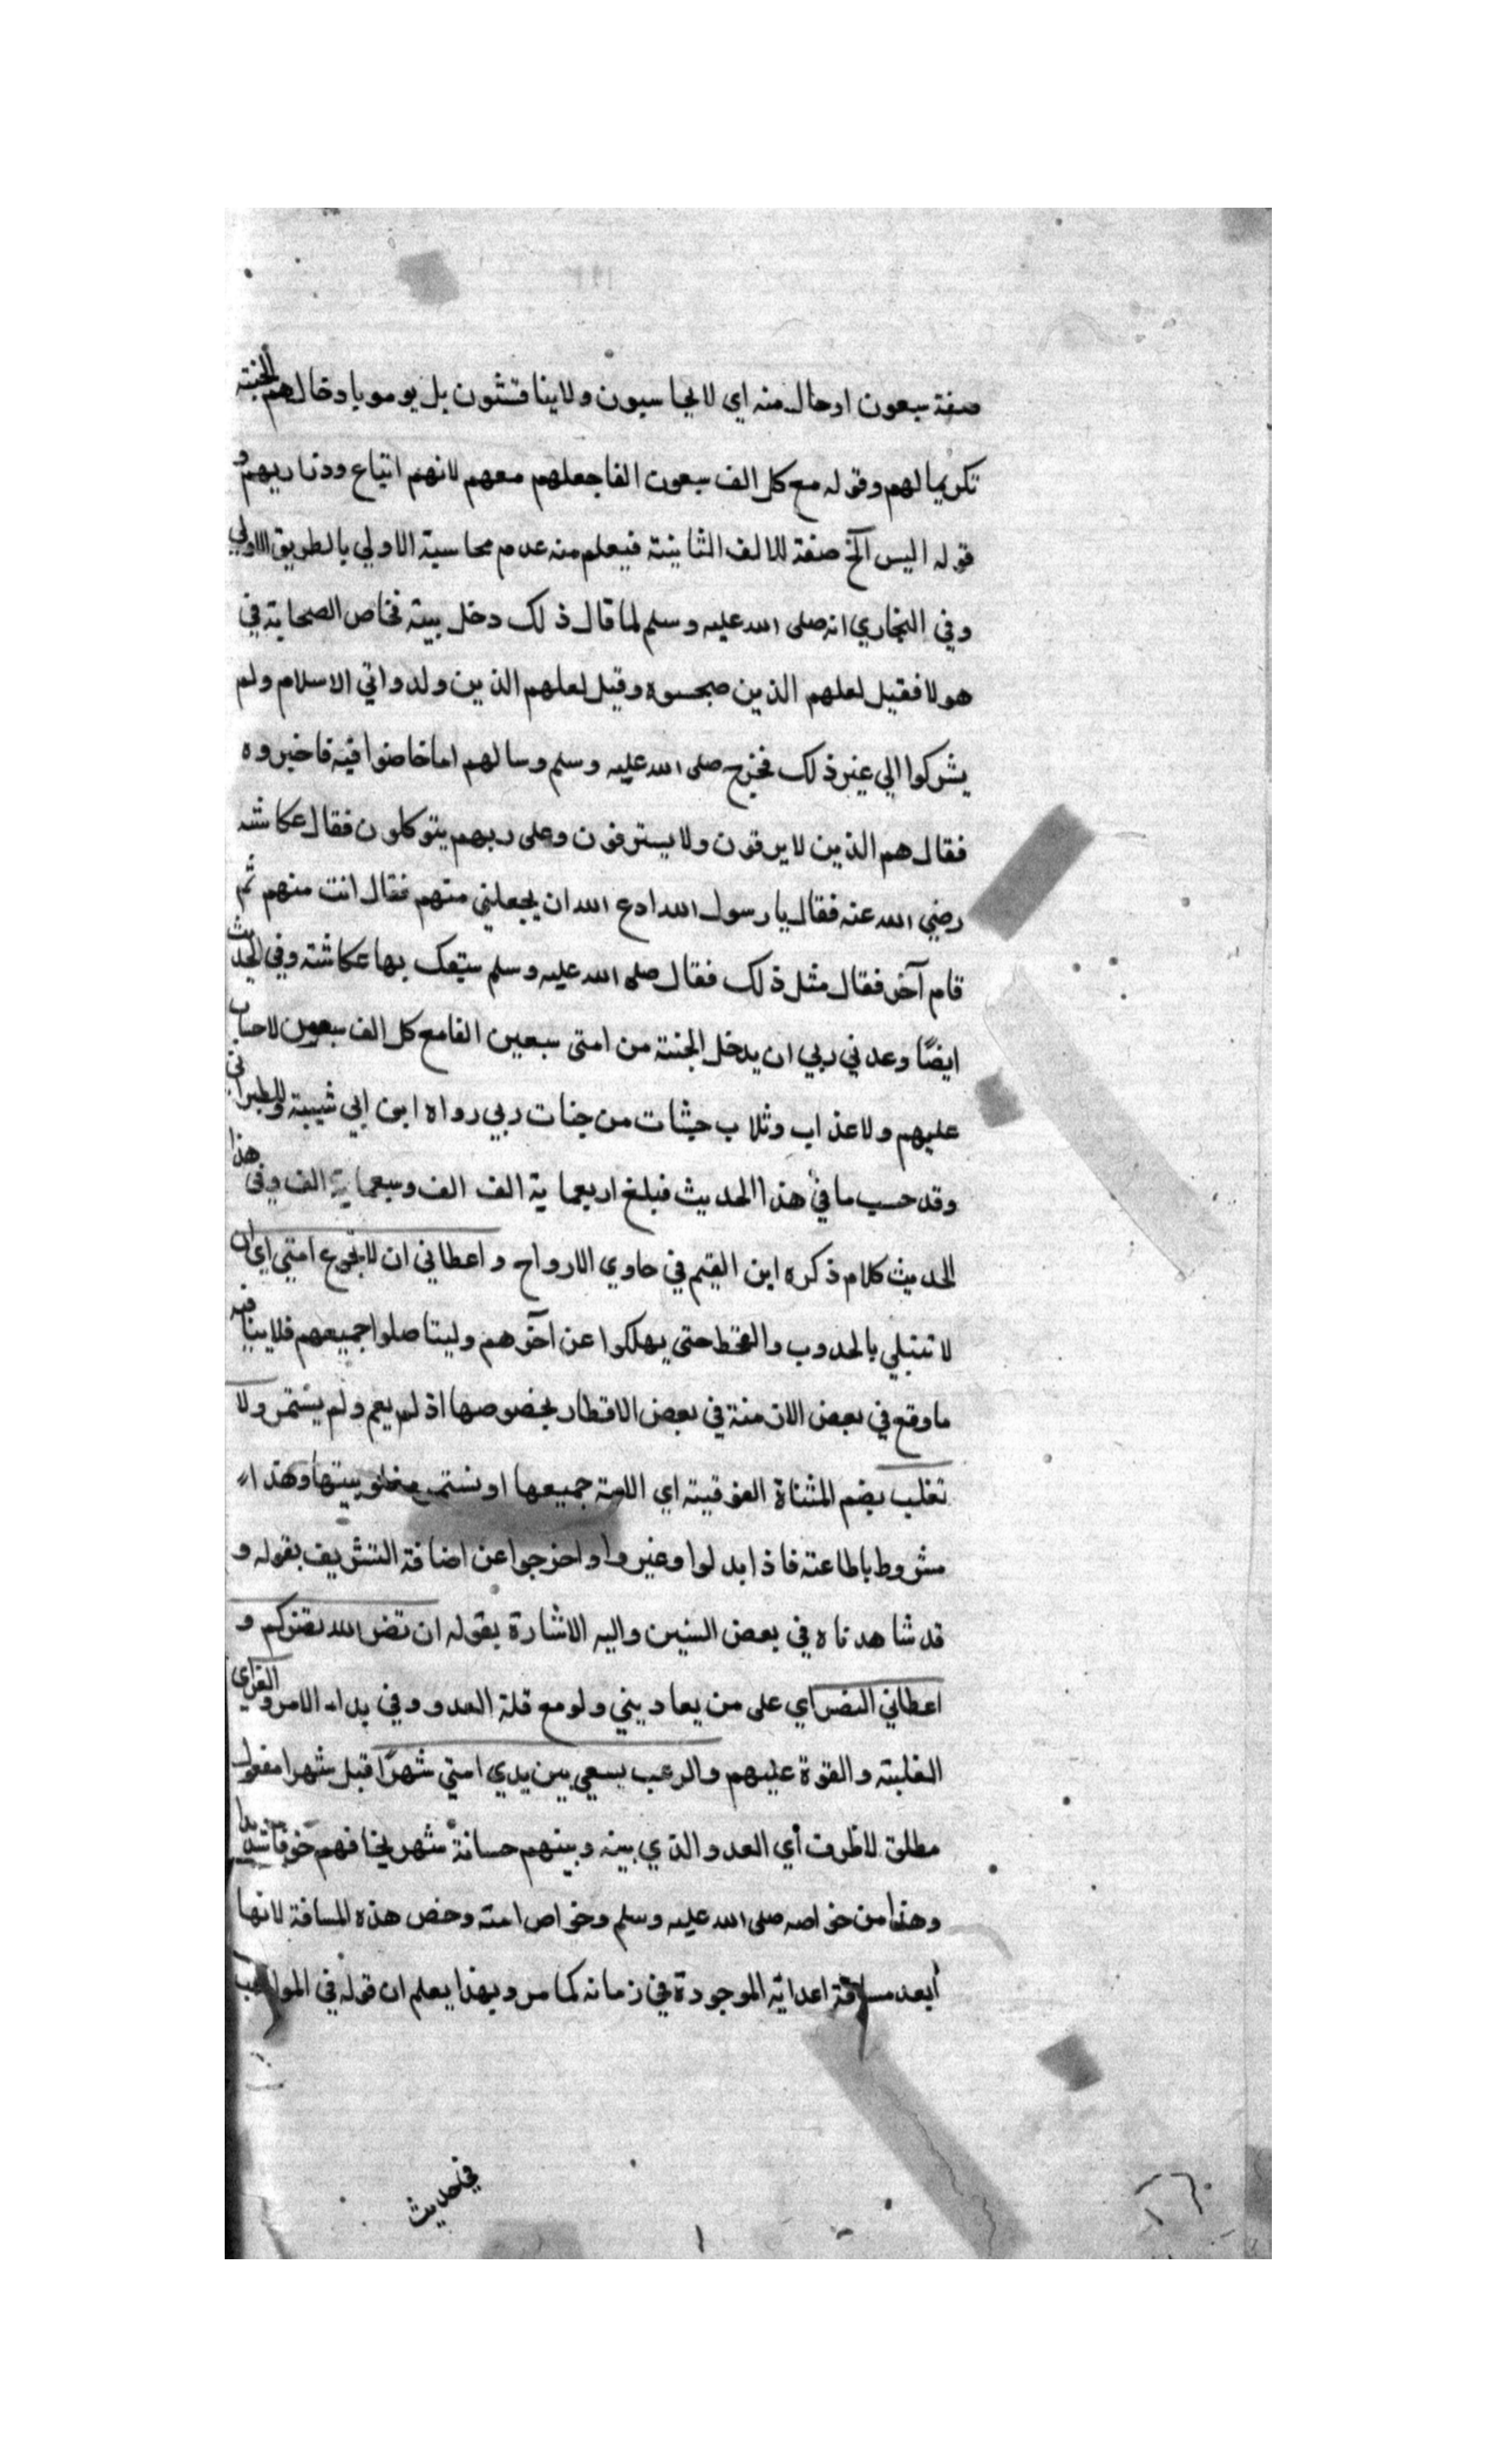 صفة سبعون او حال منه اي لا يحاسبون ولا يناقشون بل يومو بادخالهم الجنة
تكريما لهم وقوله مع كل الف سبعون الفا جعلهم معهم لانهم اتباع وذنا ربهم و
قوله اليس الخ صفة للالف الثانية فيعلم منه عدم محاسبة الاولي بالطريق الاولي
وفي البخاري انه صلى الله عليه وسلم لما قال ذلك دخل بيته فخاص الصحابة في
هولا فقيل لعلهم الذين صحبوه وقيل لعلهم الذين ولدوا في الاسلام ولم
يشركوا الي غير ذلك فخرج صلى الله عليه وسلم وسالهم اما خاضوا فيه فاخبروه
فقال هم الذين لا يرقون ولا يسترقون وعلى ربهم يتوكلون فقال عكاشه
رضي الله عنه فقال يا رسول الله ادع الله ان يجعلني منهم فقال انت منهم ثم
قام آخر فقال مثل ذلك فقال صلى الله عليه وسلم سبقك بها عكاشة وفي الحديث
ايضًا وعدني ربي ان يدخل الجنة من امتى سبعين الفا مع كل الف سبعون لا حساب
عليهم ولا عذاب وثلاث حثيات من حثيات ربي رواه ابن ابي شيبة والطبراني
وقد حسب ما في هذا الحديث فبلغ اربعماية الف الف وسبعماية الف وفي هذا
الحديث كلام ذكره ابن القيم في حاوي الارواح واعطاني ان لا تجوع امتي اي ان
لا تبتلي بالجدوب والقحط حتى يهلكوا عن آخرهم وليتاصلوا جميعهم فلا ينافيه
ما وقع في بعض الازمنة في بعض الاقطار بخصوصها اذ لم يعم ولم يستمر ولا
تغلب بضم المثناة الفوقية اي الامة جميعها او تستمر مغلوبيتها وهذا
مشروط باطاعته فاذا بدلوا وغيروا واخرجوا عن اضافة التشريف بقوله و
قد شاهدناه في بعض السنين واليه الاشارة بقوله ان تنصر الله ينصركم و
اعطاني النصر اي على من يعاديني ولو مع قلة العدد وفي بداء الامر والعز اي
الغلبة والقوة عليهم والرعب يسعي بين يدي امتي شهرًا قيل شهرا مفعول
مطلق لا ظرف أي العدو الذي بينه وبينهم مسافة شهر يخافهم خوفا شديدا
وهذا من خواصه صلى الله عليه وسلم وخواص امته وخص هذه المسافة لانها
أبعد مسافة اعدائه الموجودة في زمانه كما مر وبهذا يعلم ان قوله في المواهب
في حديث